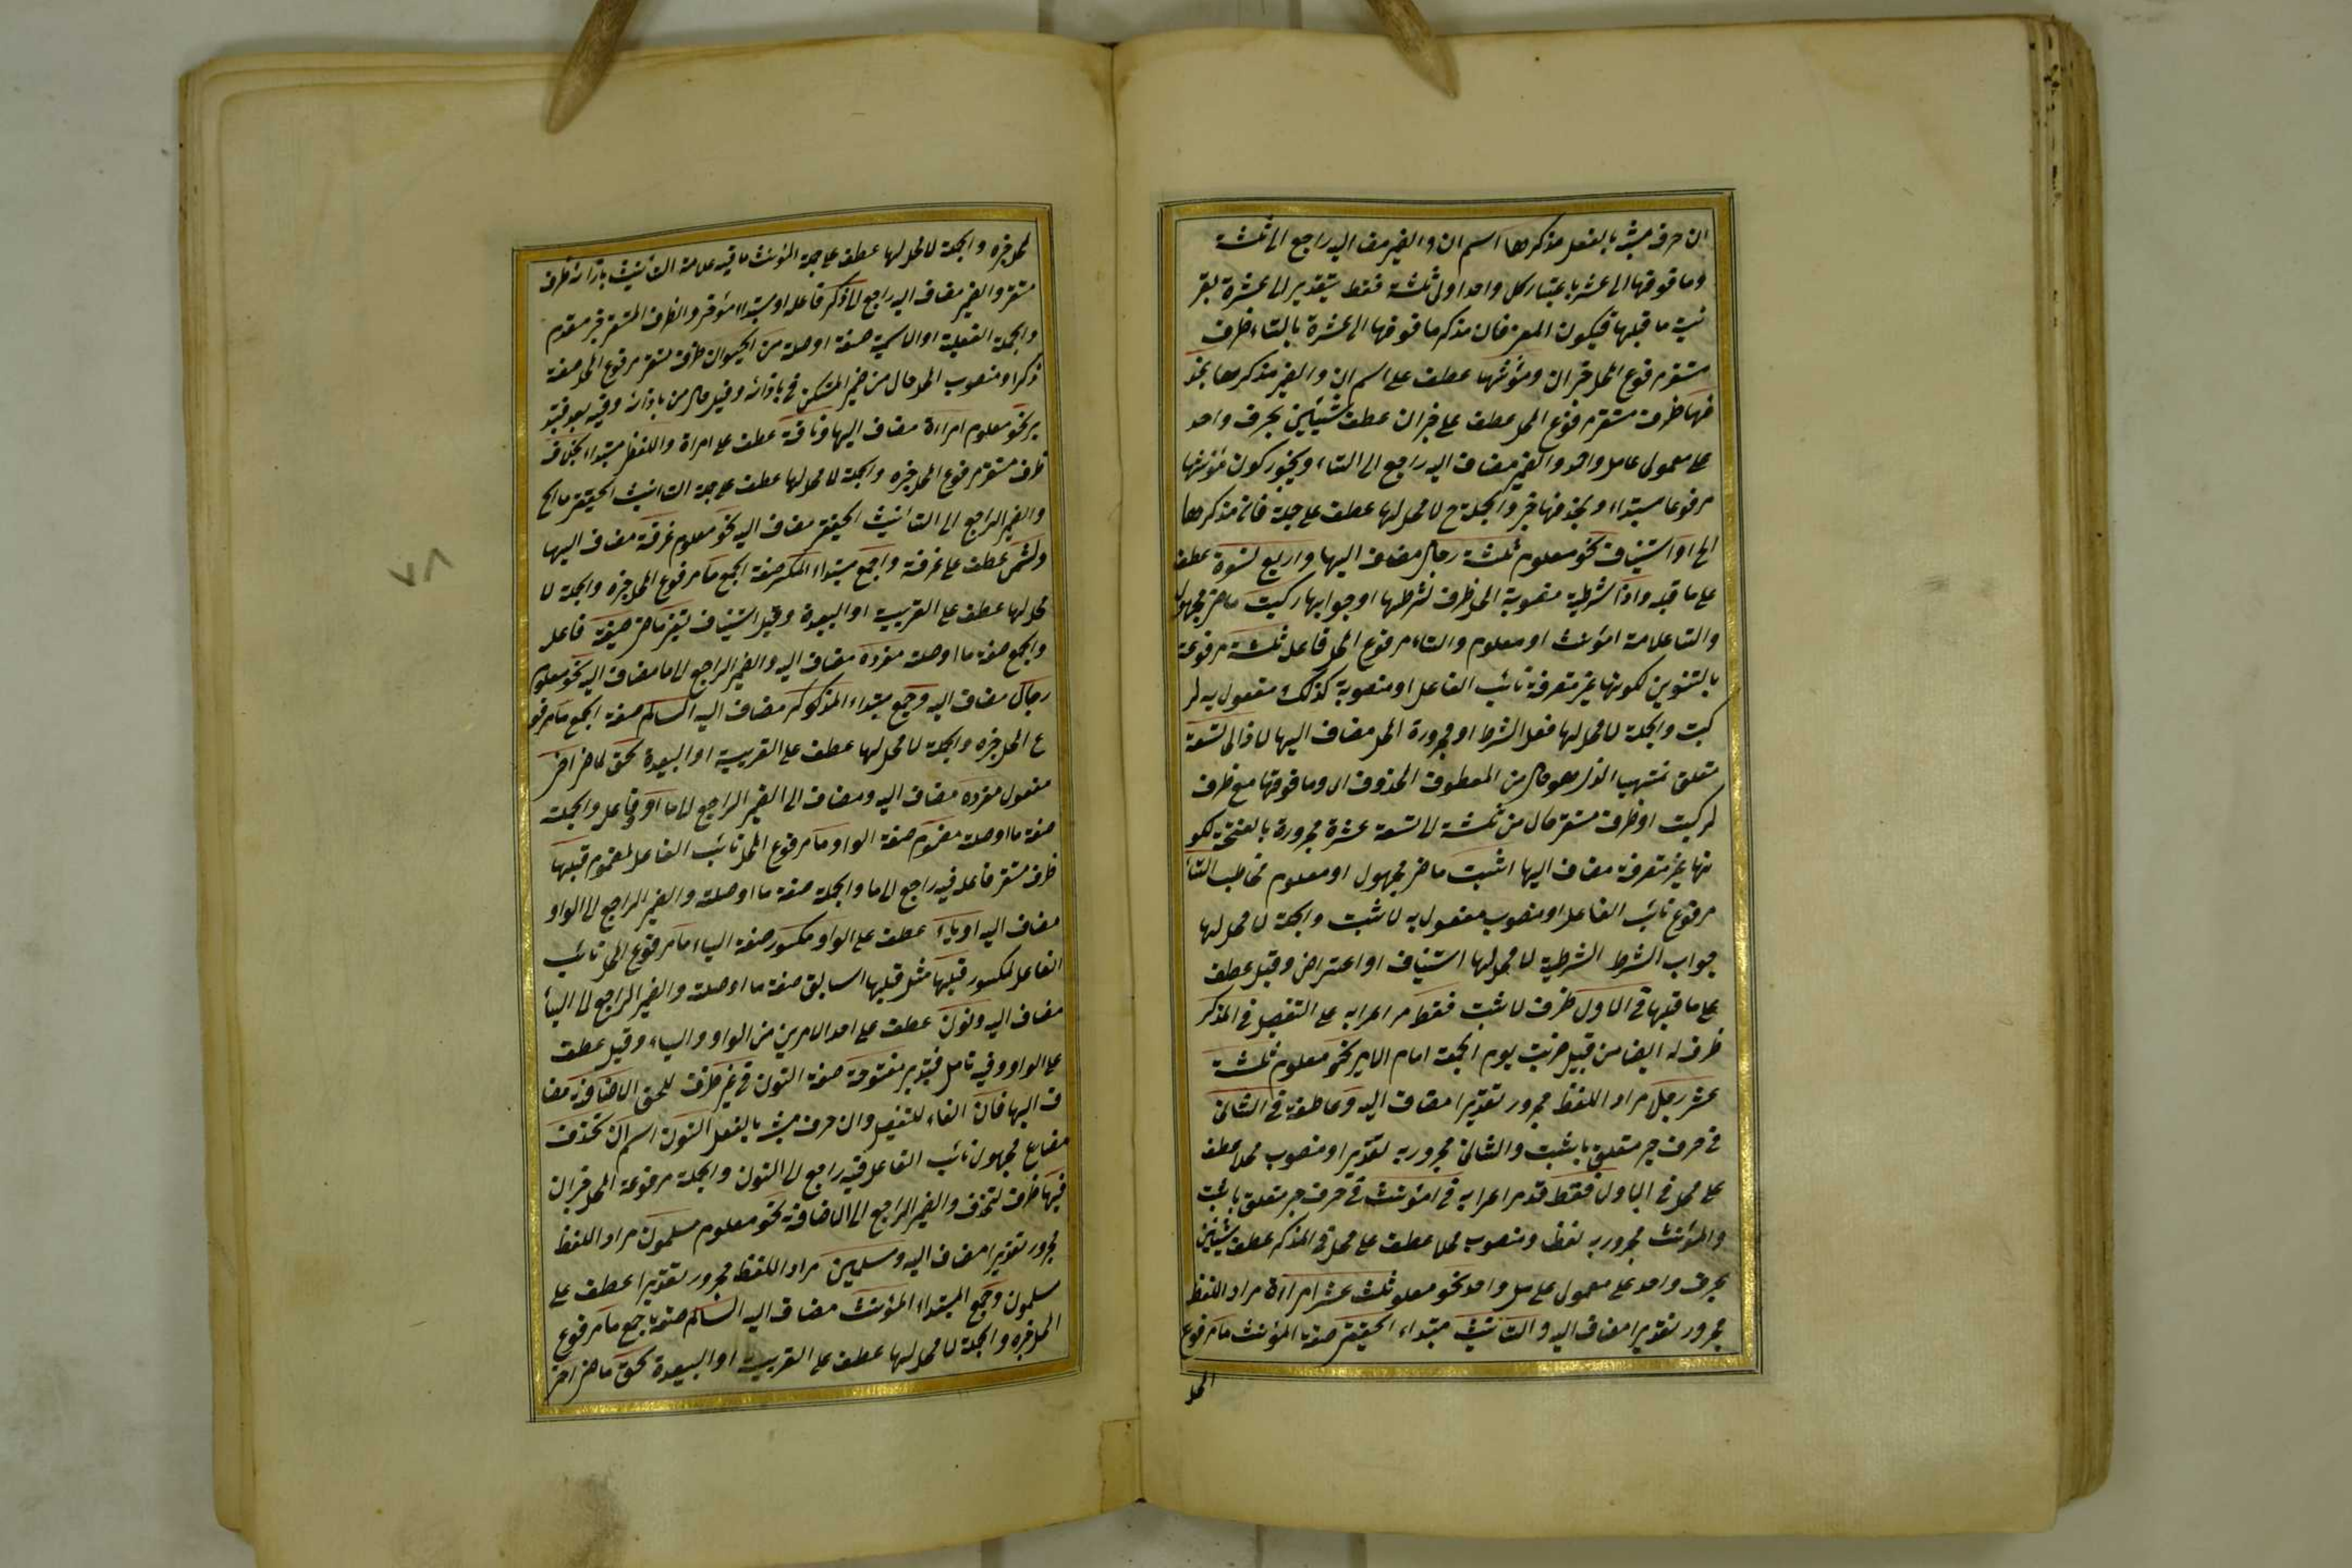 ان حرف مشبه بالفعل مذكرها اسم ان والضمير مضاف اليه راجع الى ثلثة
وما فوقها الى عشر باعتبار كل واحد اولى ثلثة فقط بتقدير الى عشرة بقر
نية ما قبلها فيكون المعنى فان مذكر ما فوقها الى عشرة بالتاء ظرف
مستقر مرفوع المحل خبر ان ومؤنثها عطف على اسم ان والضمير مذكرها بحذ
فها ظرف مستقر مرفوع المحل عطف على خبر ان عطف شيئين بحرف واحد
على معمولى عامل واحد والضمير مضاف اليه راجع الى التاء ويجوز كون مؤنثها
مرفوعا مبتداء وبحذفها خبر والجملة ح لا محل لها عطف على جملة فان مذكرها
الخ او استيناف نحو معلوم ثلثة رجال مضاف اليها واربع نسوة عطف
على ما قبله واذا شرطية منصوبة المحل ظرف لشرطها او جوابها ركبت ماض مجهول
والتا علامة المؤنث او معلوم والتاء مرفوع المحل فاعل ثلثة مرفوعة
بالتنوين لكونها غير متصرفة نائب الفاعل او منصوبة كذلك مفعول به لر
كبت والجملة لا محل لها فعل الشرط او مجرورة المحل مضاف اليها لاذا الى تسعة
متعلق بمنتهيا الذى هو حال من المعطوف المحذوف اى وما فوقها مع ظرف
لركبت او ظرف مستقر حال من ثلثة الى تسعة عشرة مجرورة بالفتحة لكو
نها غير متصرفة مضاف اليها اثبت ماض مجهول او معلوم مخاطب التاء
مرفوع نائب الفاعل او منصوب مفعول به لاثبت والجملة لا محل لها
جواب الشرط الشرطية لا محل لها استيناف او اعتراض وقيل عطف
على ما قبلها فى الاول ظرف لاثبت فقط مر اعرابه على التفصيل فى المذكر
ظرف له ايضا من قبيل ضربت يوم الجمعة امام الامير نحو معلوم ثلثة
عشر رجل مراد اللفظ مجرور تقديرا مضاف اليه وعاطفة فى الثانى
فى حرف جر متعلق باثبت والثانى مجرور به تقديرا ومنصوب محلا عطف
على محل فى الاول فقط قد مر اعرابه فى المؤنث فى حرف جر متعلق باثبت
والمؤنث مجرور به لفظا ومنصوب محلا عطف على محل فى المذكر عطف شيئين
بحرف واحد على معمولى عامل واحد نحو معلوم ثلث عشر امراة مراد اللفظ
مجرور تقديرا مضاف اليه والتانيث مبتداء الحقيقى صفة المؤنث ما مرفوع
المحل
المحل خبره والجملة لا محل لها عطف على جملة المؤنث ما فيه علامة التانيث بازائه ظرف
مستقر والضمير مضاف اليه راجع الى ما ذكر فاعله او مبتداء مؤخر والظرف المستقر خبر مقدم
والجملة الفعلية او الاسمية صفة او صلة من الحيوان ظرف مستقر مرفوع المحل صفة
ذكر او منصوب المحل حال من ضمير المستكن فى بازائه وقيل حال من بازائه وفيه بعد فتد
بر نحو معلوم امراة مضاف اليها وناقة عطف على امراة واللفظى مبتداء بخلافه
ظرف مستقر مرفوع المحل خبره والجملة لا محل لها عطف على جملة التانيث الحقيقى ما الخ
والضمير الراجع الى التانيث الحقيقى مضاف اليه نحو معلوم غرفة مضاف اليها
وشمس عطف على غرفة والجمع مبتداء المكسر صفة الجمع ما مرفوع المحل خبره والجملة لا
محل لها عطف على القريبة او البعيدة وقيل استيناف تغير ماض صيغة فاعل
والجمع صفة ما او صلة مفرده مضاف اليه والضمير الراجع الى ما مضاف اليه نحو معلوم
رجال مضاف اليه وجمع مبتداء المذكر مضاف اليه السالم صفة الجمع ما مرفو
ع المحل خبره والجملة لا محل لها عطف على القريبة او البعيدة لحق ماض اخر
مفعول مفرده مضاف اليه ومضاف الى الضمير الراجع الى ما واو فاعل والجملة
صفة ما او صلة مضموم صفة الواو ما مرفوع المحل نائب الفاعل لمضموم قبلها
ظرف مستقر فاعله فيه راجع الى ما والجملة صفة ما او صلته والضمير الراجع الى الواو
مضاف اليه او ياء عطف على الواو مكسور صفة الياء ما مرفوع المحل نائب
الفاعل لمكسور قبلها مثل قبلها السابق صفة ما او صلته والضمير الراجع الى الياء
مضاف اليه ونون عطف على احد الامرين من الواو والياء وقيل عطف
على الواو وفيه تامل فتدبر مفتوحة صفة النون فى غير ظرف للحق الاضافة مضا
ف اليها فان الفاء للتفصيل وان حرف مشبه بالفعل النون اسم ان تحذف
مضارع مجهول نائب الفاعل فيه راجع الى النون والجملة مرفوعة المحل خبر ان
فيها ظرف لتحذف والضمير الراجع الى الاضافة نحو معلوم مسلمون مراد اللفظ
مجرور تقديرا مضاف اليه ومسلمين مراد اللفظ مجرور تقديرا عطف على
مسلمون وجمع المبتداء المؤنث مضاف اليه السالم صفة جمع ما مرفوع
المحل خبره والجملة لا محل لها عطف على القريبة او البعيدة لحق ماض اخر
٧٨